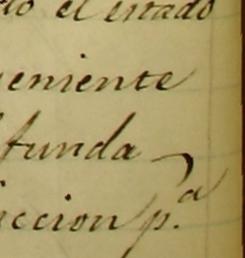 do el estado
eniente
funda
iccion p.a